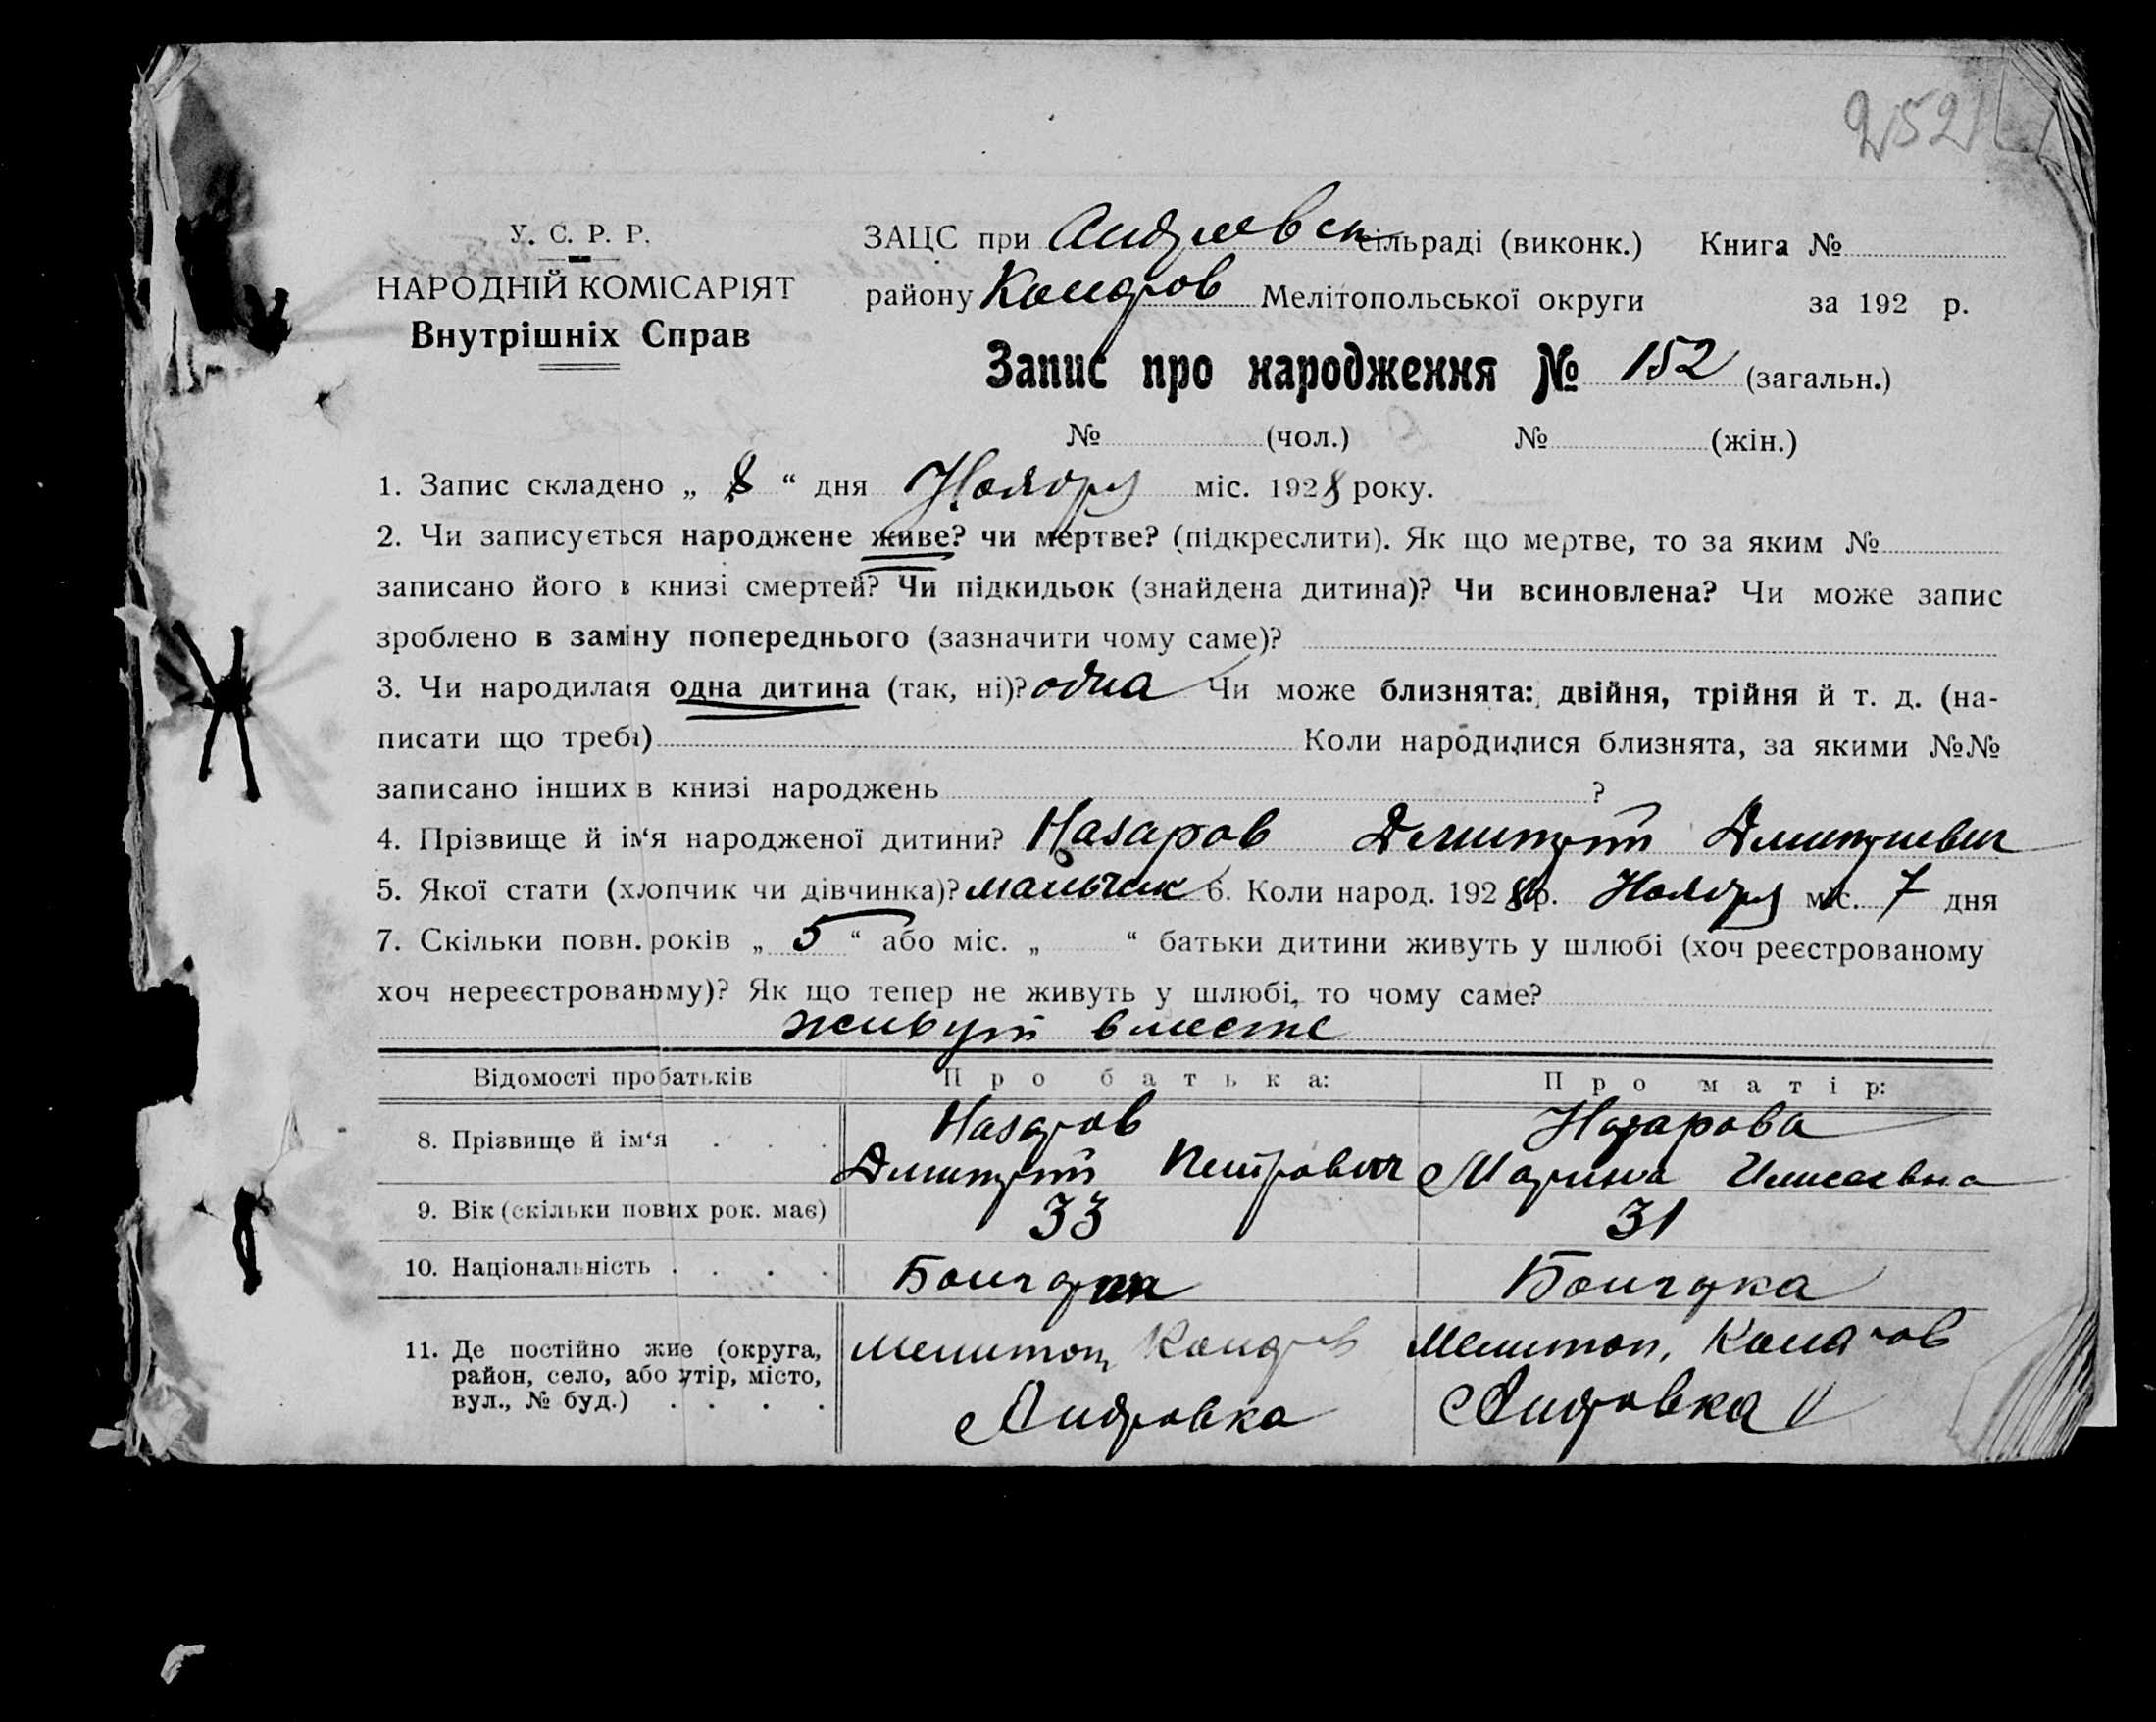 252
У. С. Р. Р.
НАРОДНІЙ КОМІСАРІЯТ
Внутрішніх Справ
ЗАЦС при Андреевск сільраді (виконк.) Книга №
району Комаров Мелітопольської округи за 192 р.
Запис про народження № 152 (загальн.)
№ (чол.) № (жін.)
1. Запис складено „ 8 “ дня Ноября міс. 1928 року.
2. Чи записується народжене живе? чи мертве? (підкреслити). Як що мертве, то за яким №
записано його в книзі смертей? Чи підкидьок (знайдена дитина)? Чи всиновлена? Чи може запис
зроблено в заміну попереднього (зазначити чому саме)?
3. Чи народилася одна дитина (так, ні)? одна Чи може близнята: двійня, трійня й т. д. (на-
писати що треба) Коли народилися близнята, за якими №№
записано інших в книзі народжень ?
4. Прізвище й ім‘я народженої дитини? Назаров Дмитрий Дмитриевич
5. Якої стати (хлопчик чи дівчинка)? мальчик 6. Коли народ. 1928 р. Ноября міс. 7 дня
7. Скільки повн. років „ 5 “ або міс. „ “ батьки дитини живуть у шлюбі (хоч реєстрованому
хоч нереєстрованому)? Як що тепер не живуть у шлюбі, то чому саме?
живут вместе
Відомості про батьків Про батька: Про матір:
8. Прізвище й ім‘я . . . Назаров Назарова
Дмитрий Петрович Марина Елисеевна
9. Вік (скільки пових рок. має) 33 31
10. Національність . . . . Болгарин Болгарка
11. Де постійно живе (округа, Мелитоп, Мелитоп,
район, село, або хутір, місто,
вул., № буд.) . . . . Андровка Андровка